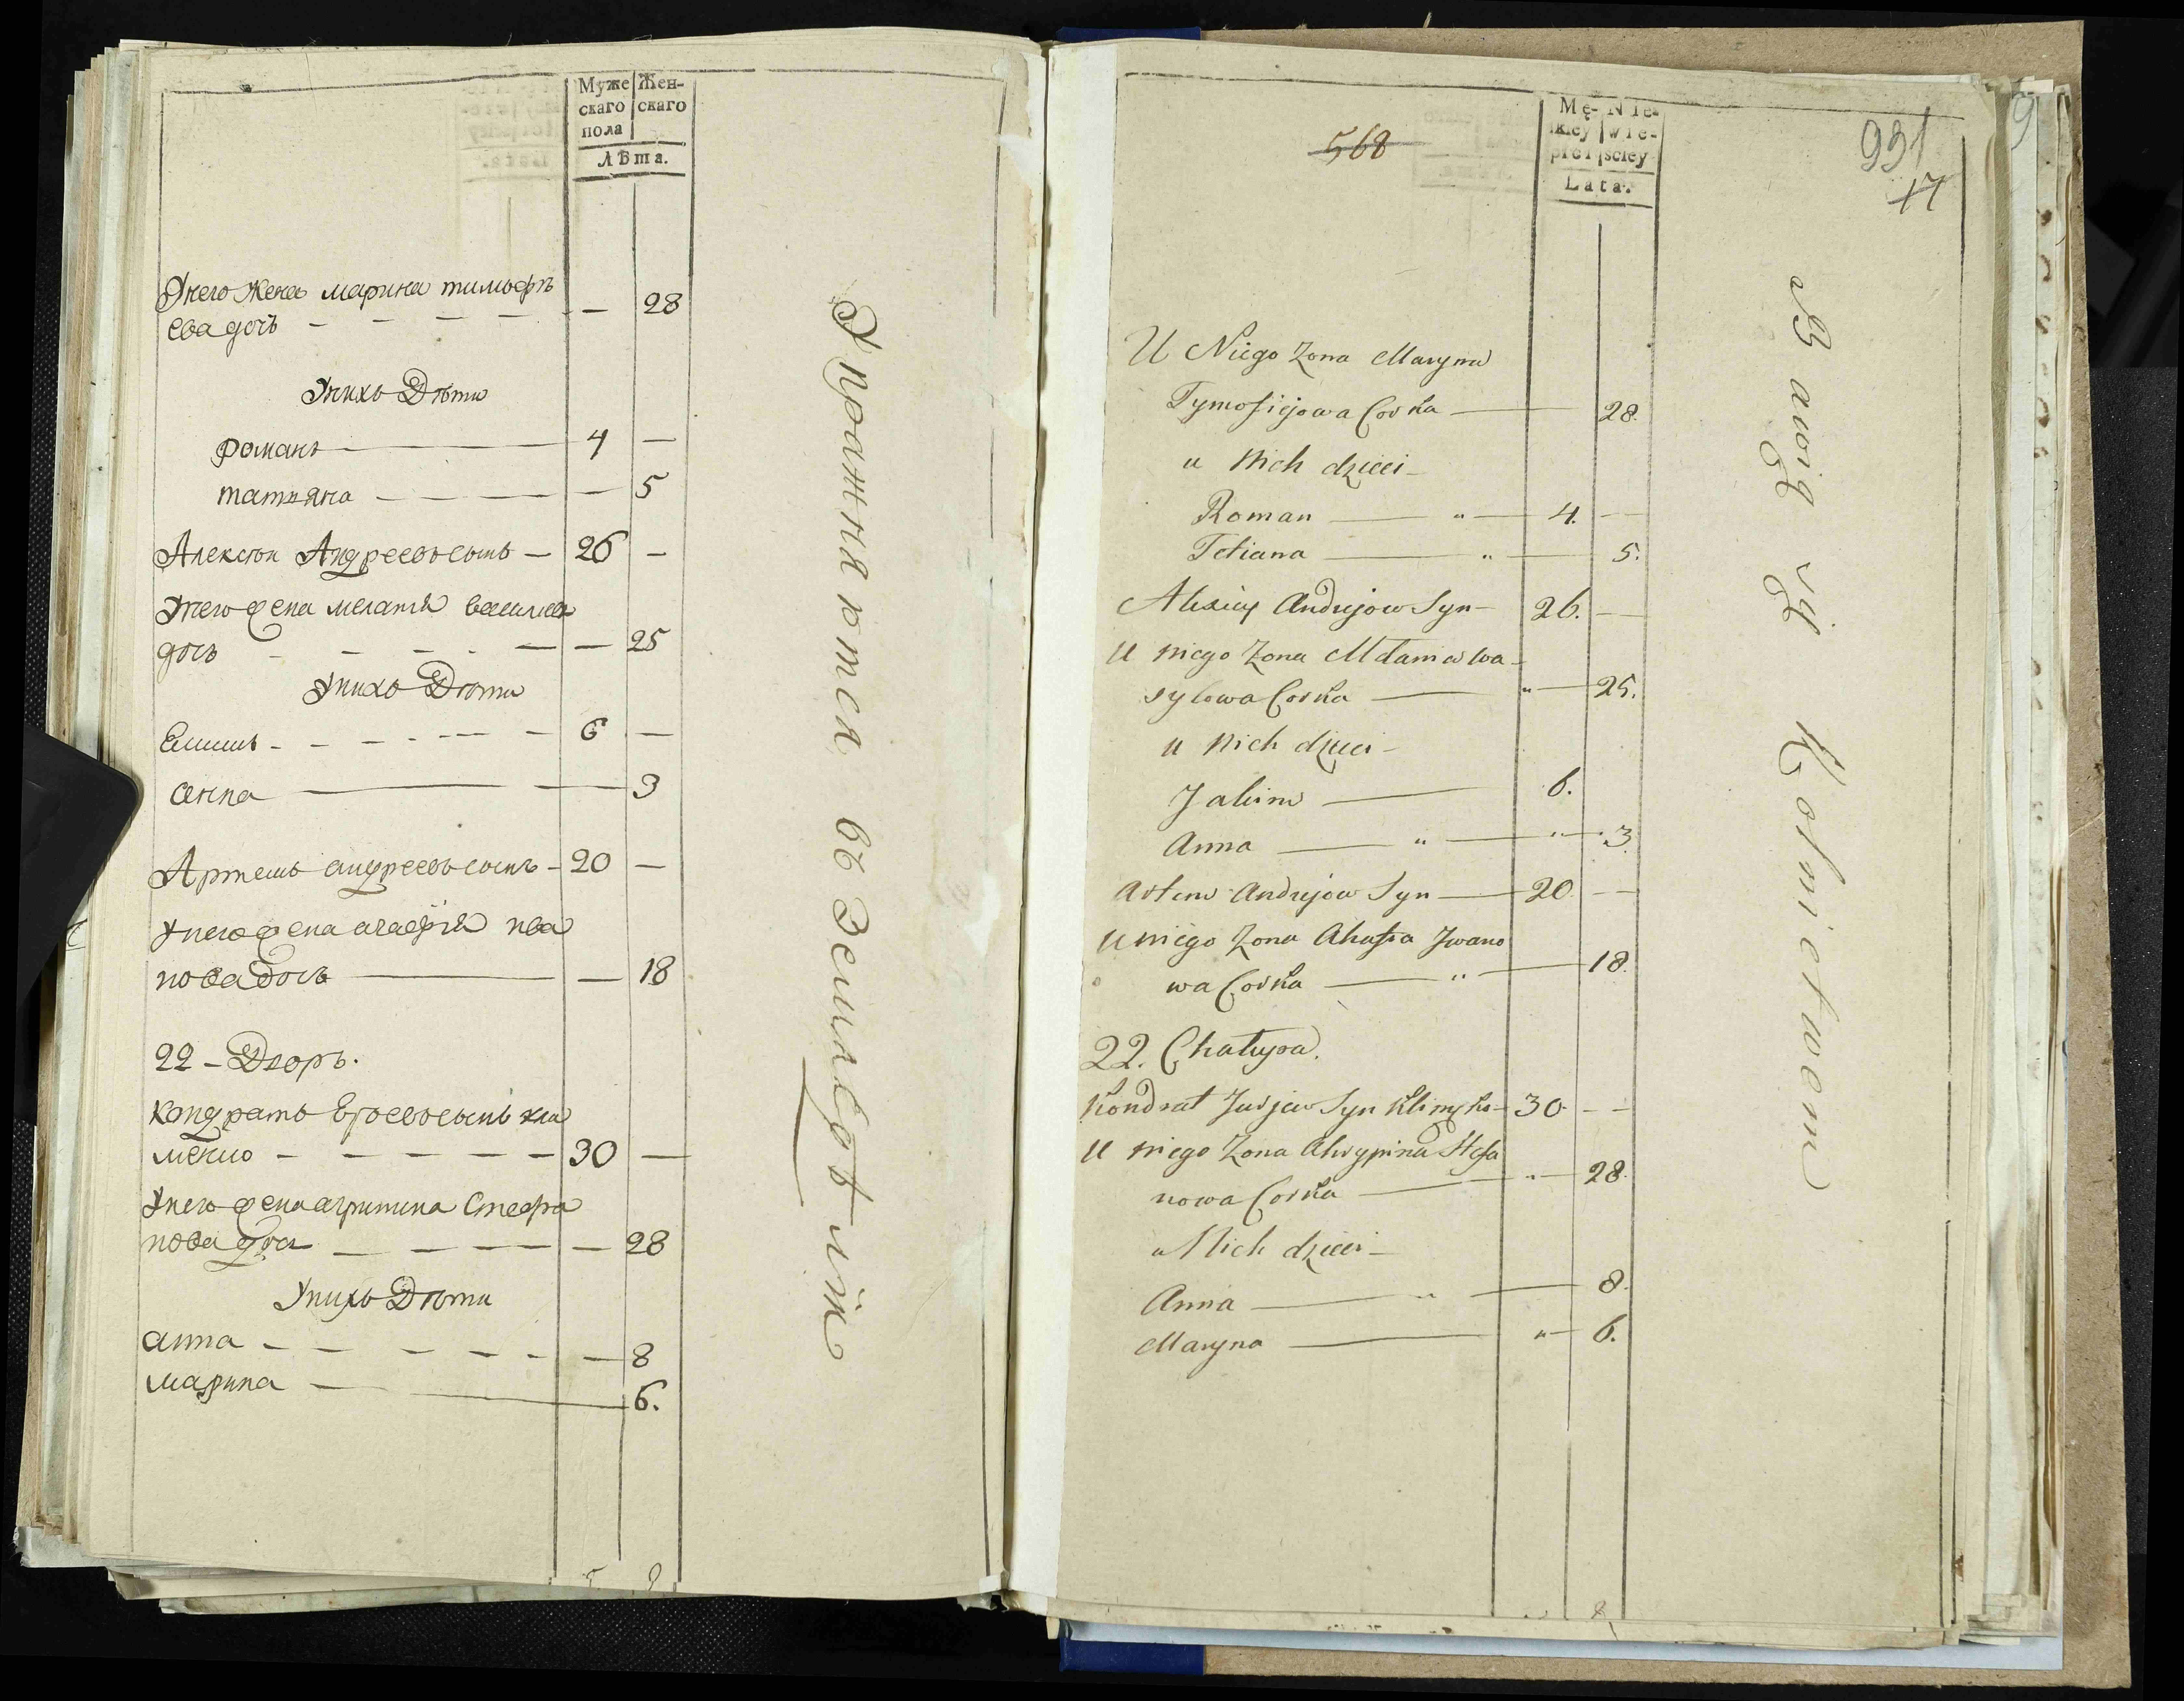 Муже Жен-
скаго скаго
пола
Лѣта.
Унего жена марина тимофѣ
ева дочь - - - - - 28
Унихъ Дѣти
романъ 4 -
татьяна - 5
Алексѣи Андреевъ сынъ - 26 -
Унего жена меланія василева
дочь - 25
Унихъ Дѣти
6 -
анна - 3
Артемъ андреевъ сынъ - 20 -
Унего жена агафія ива
нова дочь - 18
22 - Дворъ.
кондратъ сынъ кли
менко - 30 -
Унего жена агрипина Стефа
нова дочь - 28
Унихъ Дѣти
анна - 8
марина - 6.
Упражняются въ Земледѣліи
568
Mę- Nie-
skiey wie-
płci sciey
Lata.
931
17
9
U Niego Żona Maryna
Tymofiejowa Corka - 28.
u Nich dzieci -
Roman " 4. -
Tetiana " 5.
Alexiey Andrejow Syn - 26. -
U niego Żona Mełania Wa-
sylowa Corka " 25.
u Nich dzieci -
Jakim 6.
Anna " " 3.
Artem Andrejow Syn 20 -
U niego Żona Ahafia Iwano
wa Corka " 18.
22. Chałupa.
Kondrat Jurjew Syn Klimenko - 30 - -
U niego Żona Ahrypina Stefa
nowa Corka " 28.
u Nich dzieci -
Anna " 8.
Maryna " 6.
Bawią się Kolnictwem